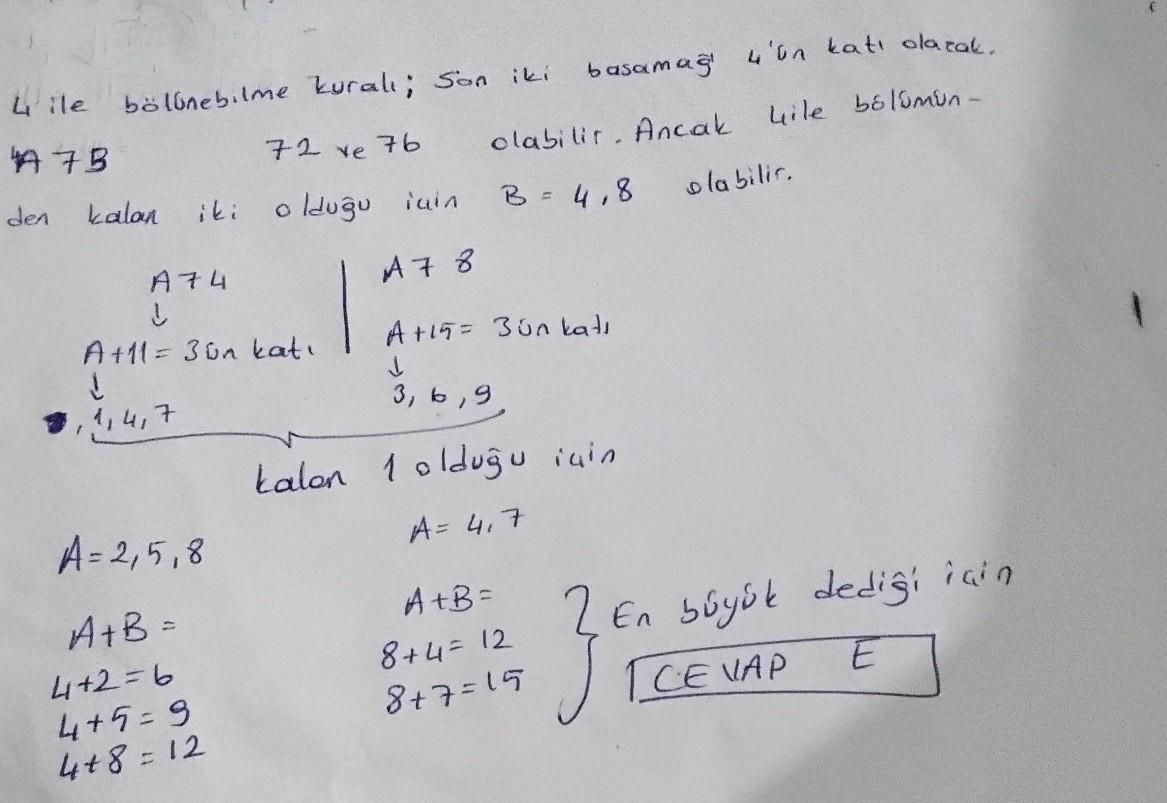 4 ile bölünebilme kuralı; Son iki basamağı 4'ün katı olacak.
A7B 72 ve 76 olabilir. Ancak 4ile bölümün-
den kalan iki olduğu için B = 4,8 olabilir.
A74 A78
↓
A+11 = 3ün katı A+15= 3ün katı
↓ ↓
, 1,4,7 3,6,9
kalan 1 olduğu için
A=2,5,8 A= 4,7
A+B= A+B= } En büyük dediği için
4+2=6 8+4=12 CEVAP E
4+5=9 8+7=15
4+8=12